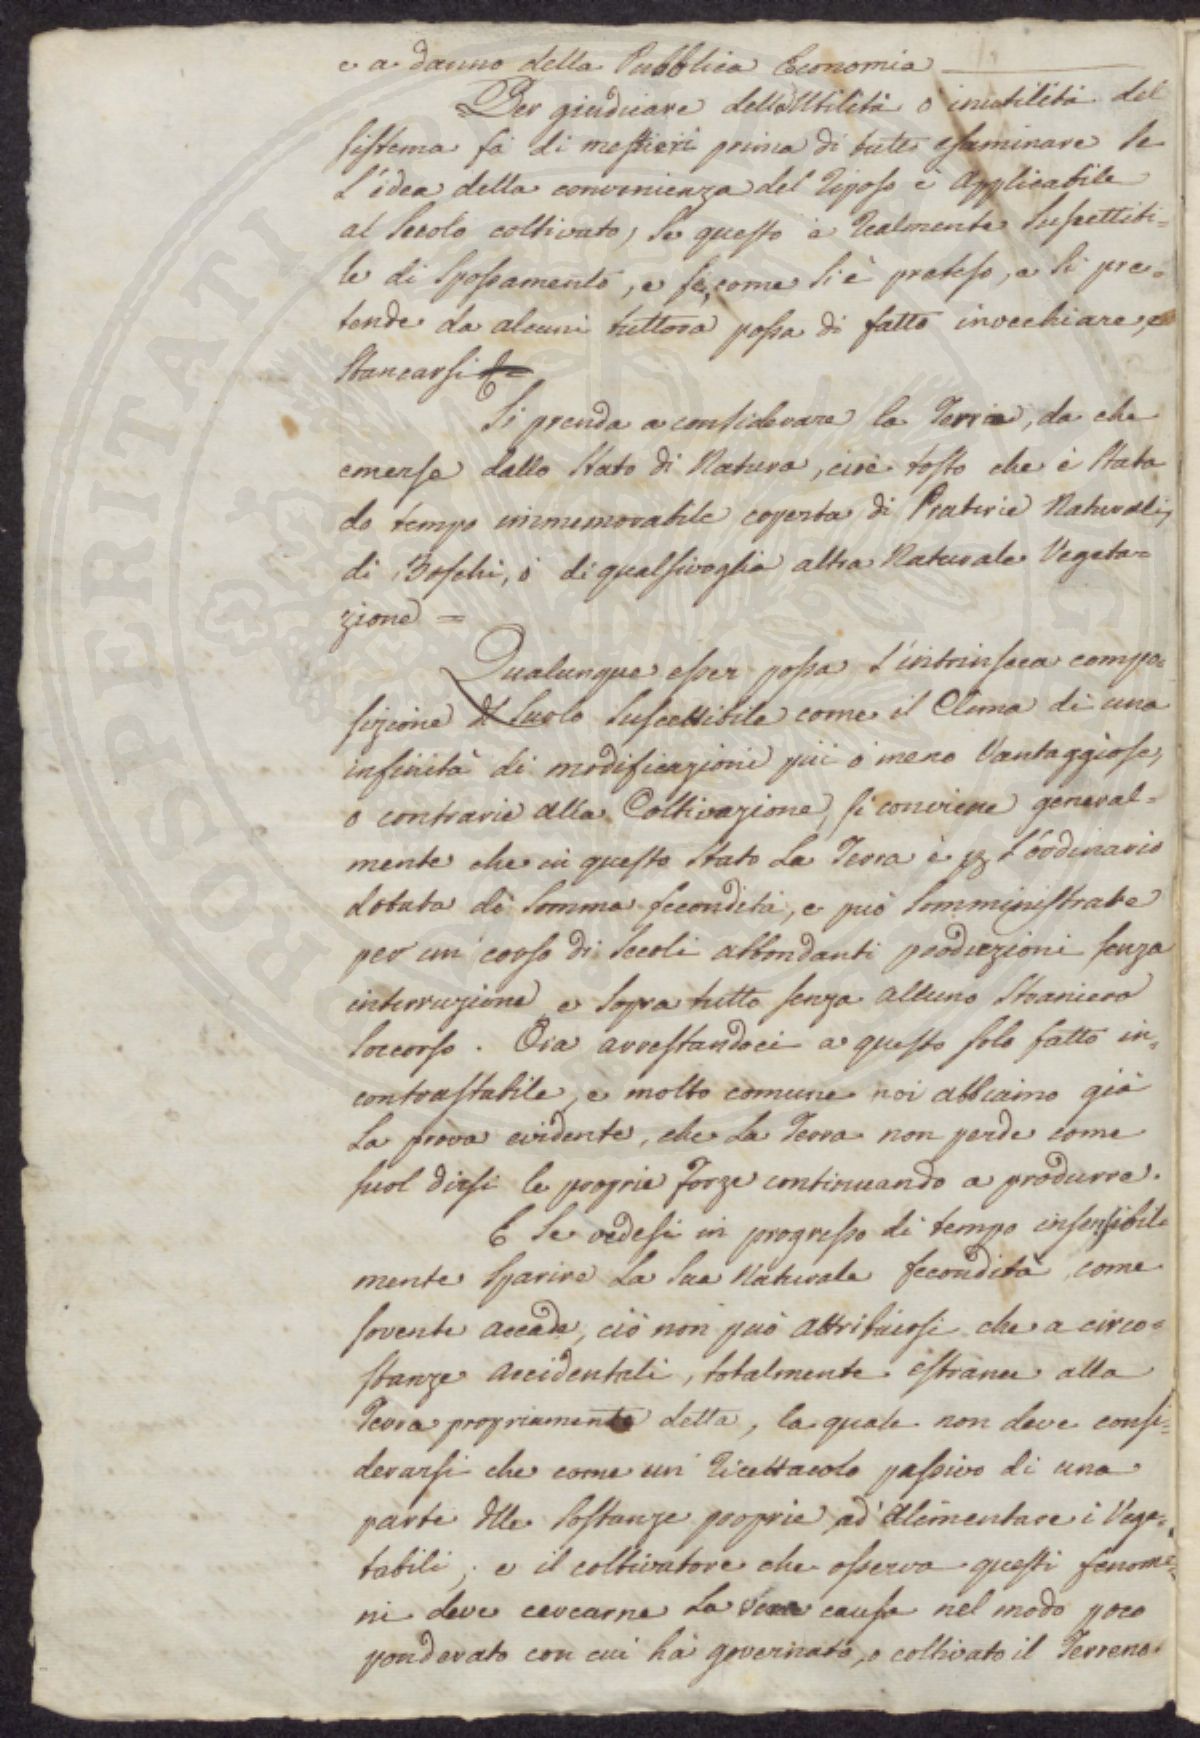 e a danno della Pubblica Economia
Per giudicare dell'Utilità o inutilità del
sistema fà di mestieri prima di tutto esaminare se
L'idea della convenienza del Riposo è Applicabile
al Secolo coltivato, Se questo è Realmente Suscettibi=
le di Spossamento, e se, come Si è preteso, e Si pre=
tende da alcuni tuttora possa di fatto invecchiare, e
Stancarsi
Si prenda a considerare la Terra, da che
emerse dallo Stato di Natura, cioè tosto che è Stata
da tempo immemorabile coperta di Praterie Naturali,
di Boschi, ò di qualsivoglia altra Naturale Vegeta=
zione =
Qualunque esser possa L'intrinseca compo=
sizione del Suolo Suscettibile come il Clima di una
infinità di modificazioni più ò meno Vantaggiose,
o contrarie alla Coltivazione, si conviene general=
mente che in questo Stato La Terra è p L'ordinario
dotata di Somma fecondità, e può Somministrare
per un corso di Secoli abbondanti produzioni senza
interruzione, e Sopra tutto senza alcuno Straniero
Soccorso. Ora arrestandoci a questo solo fatto in=
contrastabile, e molto comune noi abbiamo già
La prova evidente, che La Terra non perde come
suol dirsi le proprie Forze continuando a produrre.
E Se vedesi in progresso di tempo insensibil
mente Sparire La Sua Naturale fecondità, come
sovente accade, ciò non può attribuirsi che a circo=
stanze accidentali, totalmente estranee alla
Terra propriamente detta, la quale non deve consi=
derarsi che come un Ricettacolo passivo di una
parte delle Sostanze proprie ad Alimentare i Vege=
tabili; e il coltivatore che osserva questi fenome=
ni deve cercarne La vera causa nel modo poco
ponderato con cui hà governato, o coltivato il Terreno.
PROSPERITATI